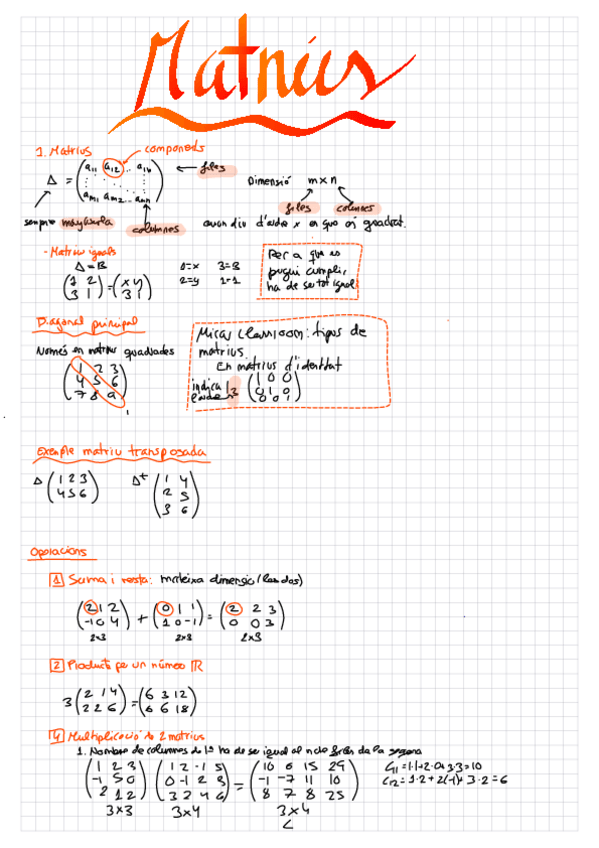 Matrius
1. Matrius
components
A = ( a11 a12 .. a1n
am1 am2 .. amn )
files
columnes
sempre mayúscula
Dimensió m x n
files columnes
quan diu d'ordre x es que és quadrat.
- Matrius iguals
A = B
( 1 2
3 1 ) = ( x y
3 1 )
1=x 3=3
2=y 1=1
Per a que es
pugui cumplir,
ha de ser tot igual
Diagonal principal
Només en matrius quadrades
1 2 3
4 5 6
7 8 9
Mirar classroom: tipus de
matrius.
En matrius d'identitat
indica
l'ordre
I3
1 0 0
0 1 0
0 0 1
Exemple matriu transposada
A ( 1 2 3
4 5 6 )
At ( 1 4
2 5
3 6 )
Operacions
1 Suma i resta: mateixa dimensió (les dos)
( 2 1 2
-1 0 4 ) + ( 0 1 1
1 0 -1 ) = ( 2 2 3
0 0 3 )
2x3 2x3 2x3
2 Producte per un número R
3 ( 2 1 4
2 2 6 ) = ( 6 3 12
6 6 18 )
4 Multiplicació de 2 matrius
1. Nombre de columnes de 1ª ha de ser igual al nº de files de la segona
( 1 2 3
-1 5 0
2 1 2 ) ( 1 2 -1 5
0 -1 2 3
3 2 4 6 ) = ( 10 6 15 29
-1 -7 11 10
8 7 8 25 )
3x3 3x4 3x4
C11 = 1·1+2·0+3·3=10
C12 = 1·2+2(-1)+3·2=6